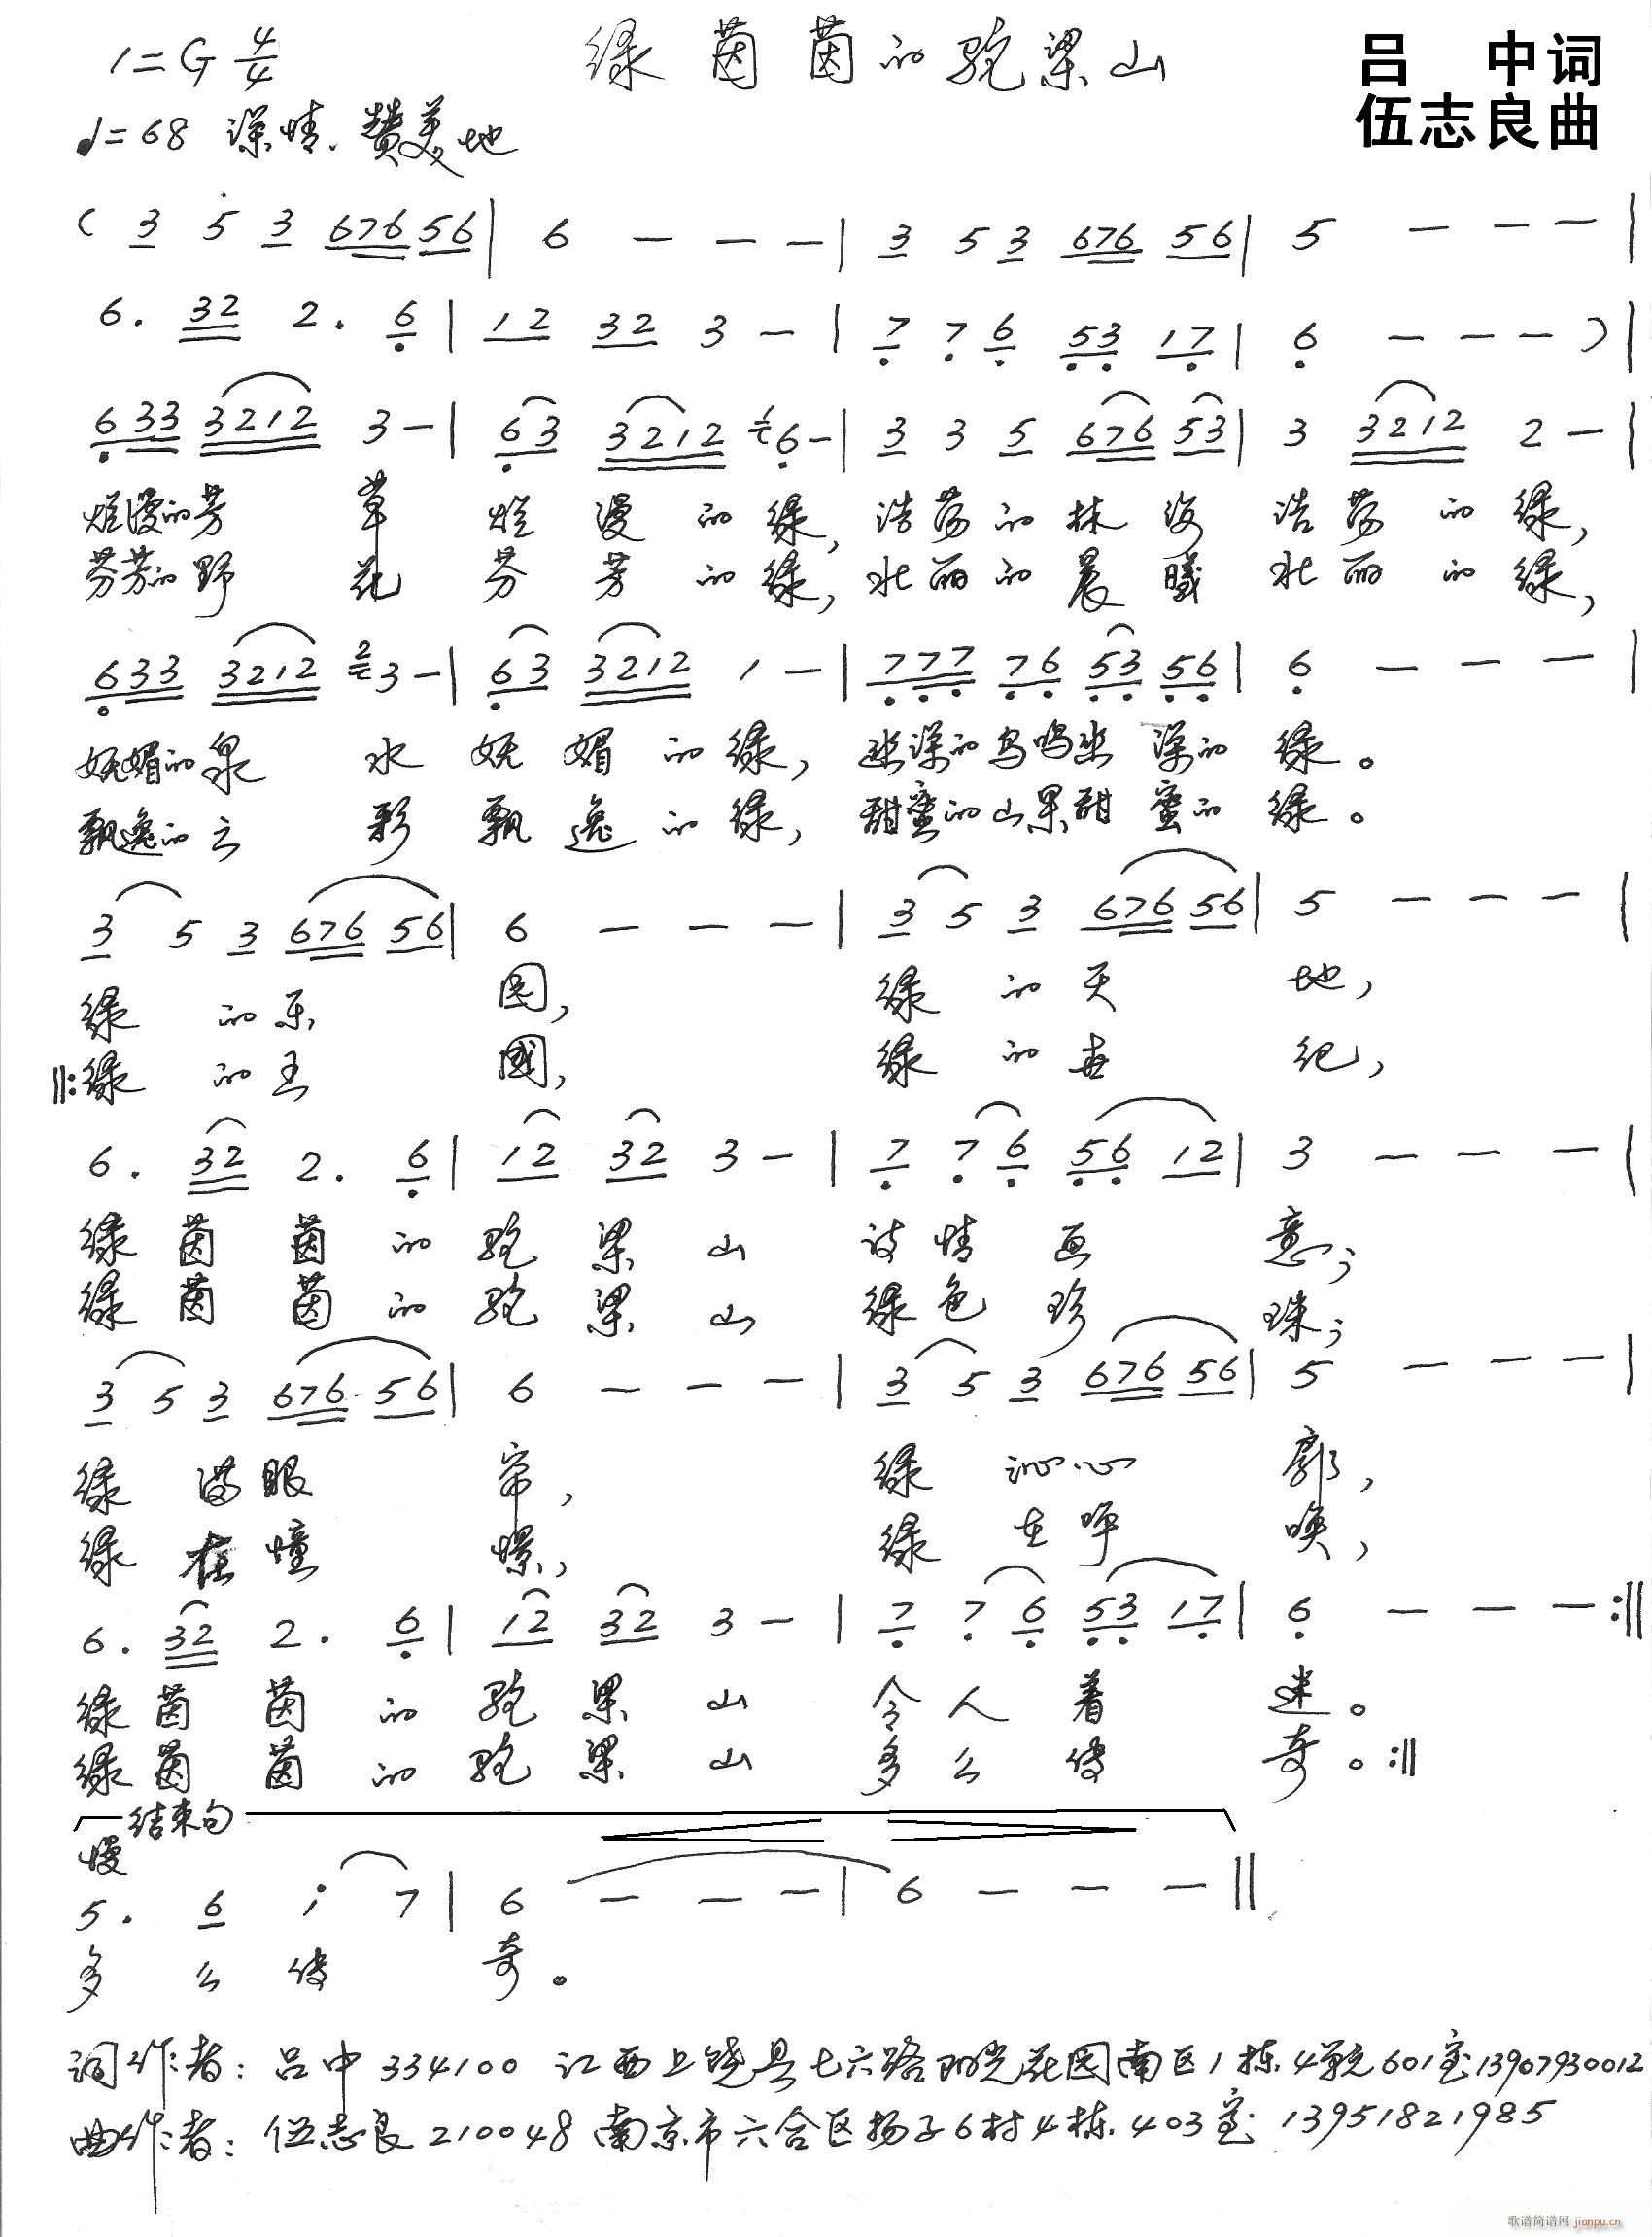 1=G 4/4 绿茵茵的驼梁山 吕 中词
♩=68 深情、赞美地 伍志良曲
( 3 5 3 676 56 | 6 - - - | 3 5 3 676 56 | 5 - - - |
6. 32 2. 6 | 12 32 3 - | 7 7 6 53 17 | 6 - - - ) |
633 3212 3 - | 63 3212 6 - | 3 3 5 676 53 | 3 3212 2 - |
烂漫的芳 草 烂 漫 的 绿, 浩荡的林 海 浩 荡 的 绿,
芬芳的野 花 芬 芳 的 绿, 壮丽的晨 曦 壮 丽 的 绿,
633 3212 3 - | 63 3212 1 - | 777 76 53 56 | 6 - - - |
妩媚的泉 水 妩 媚 的 绿, 幽深的鸟鸣幽 深的 绿。
飘逸的云 彩 飘 逸 的 绿, 甜蜜的山果甜 蜜的 绿。
3 5 3 676 56 | 6 - - - | 3 5 3 676 56 | 5 - - - |
绿 的乐 园, 绿 的天 地,
‖:绿 的王 國, 绿 的世 纪,
6. 32 2. 6 | 12 32 3 - | 7 7 6 56 12 | 3 - - - |
绿茵 茵 的 驼 梁 山 诗情 画 意;
绿茵 茵 的 驼 梁 山 绿色 珍 珠;
3 5 3 676 56 | 6 - - - | 3 5 3 676 56 | 5 - - - |
绿 满眼 帘, 绿 沁心 廓,
绿 在憧 憬, 绿 在呼 唤,
6. 32 2. 6 | 12 32 3 - | 7 7 6 53 17 | 6 - - - :‖
绿茵 茵 的 驼 梁 山 令人 着 迷。
绿茵 茵 的 驼 梁 山 多么 传 奇。:‖
结束句
慢
5. 6 i 7 | 6 - - - | 6 - - - ‖
多 么 传 奇。
词作者: 吕中 334100 江西上饶县七六路阳光花园南区1栋4单元601室13907930012
曲作者: 伍志良210048南京市六合区扬子6村4栋403室 13951821985
歌谱简谱网 jianpu.cn